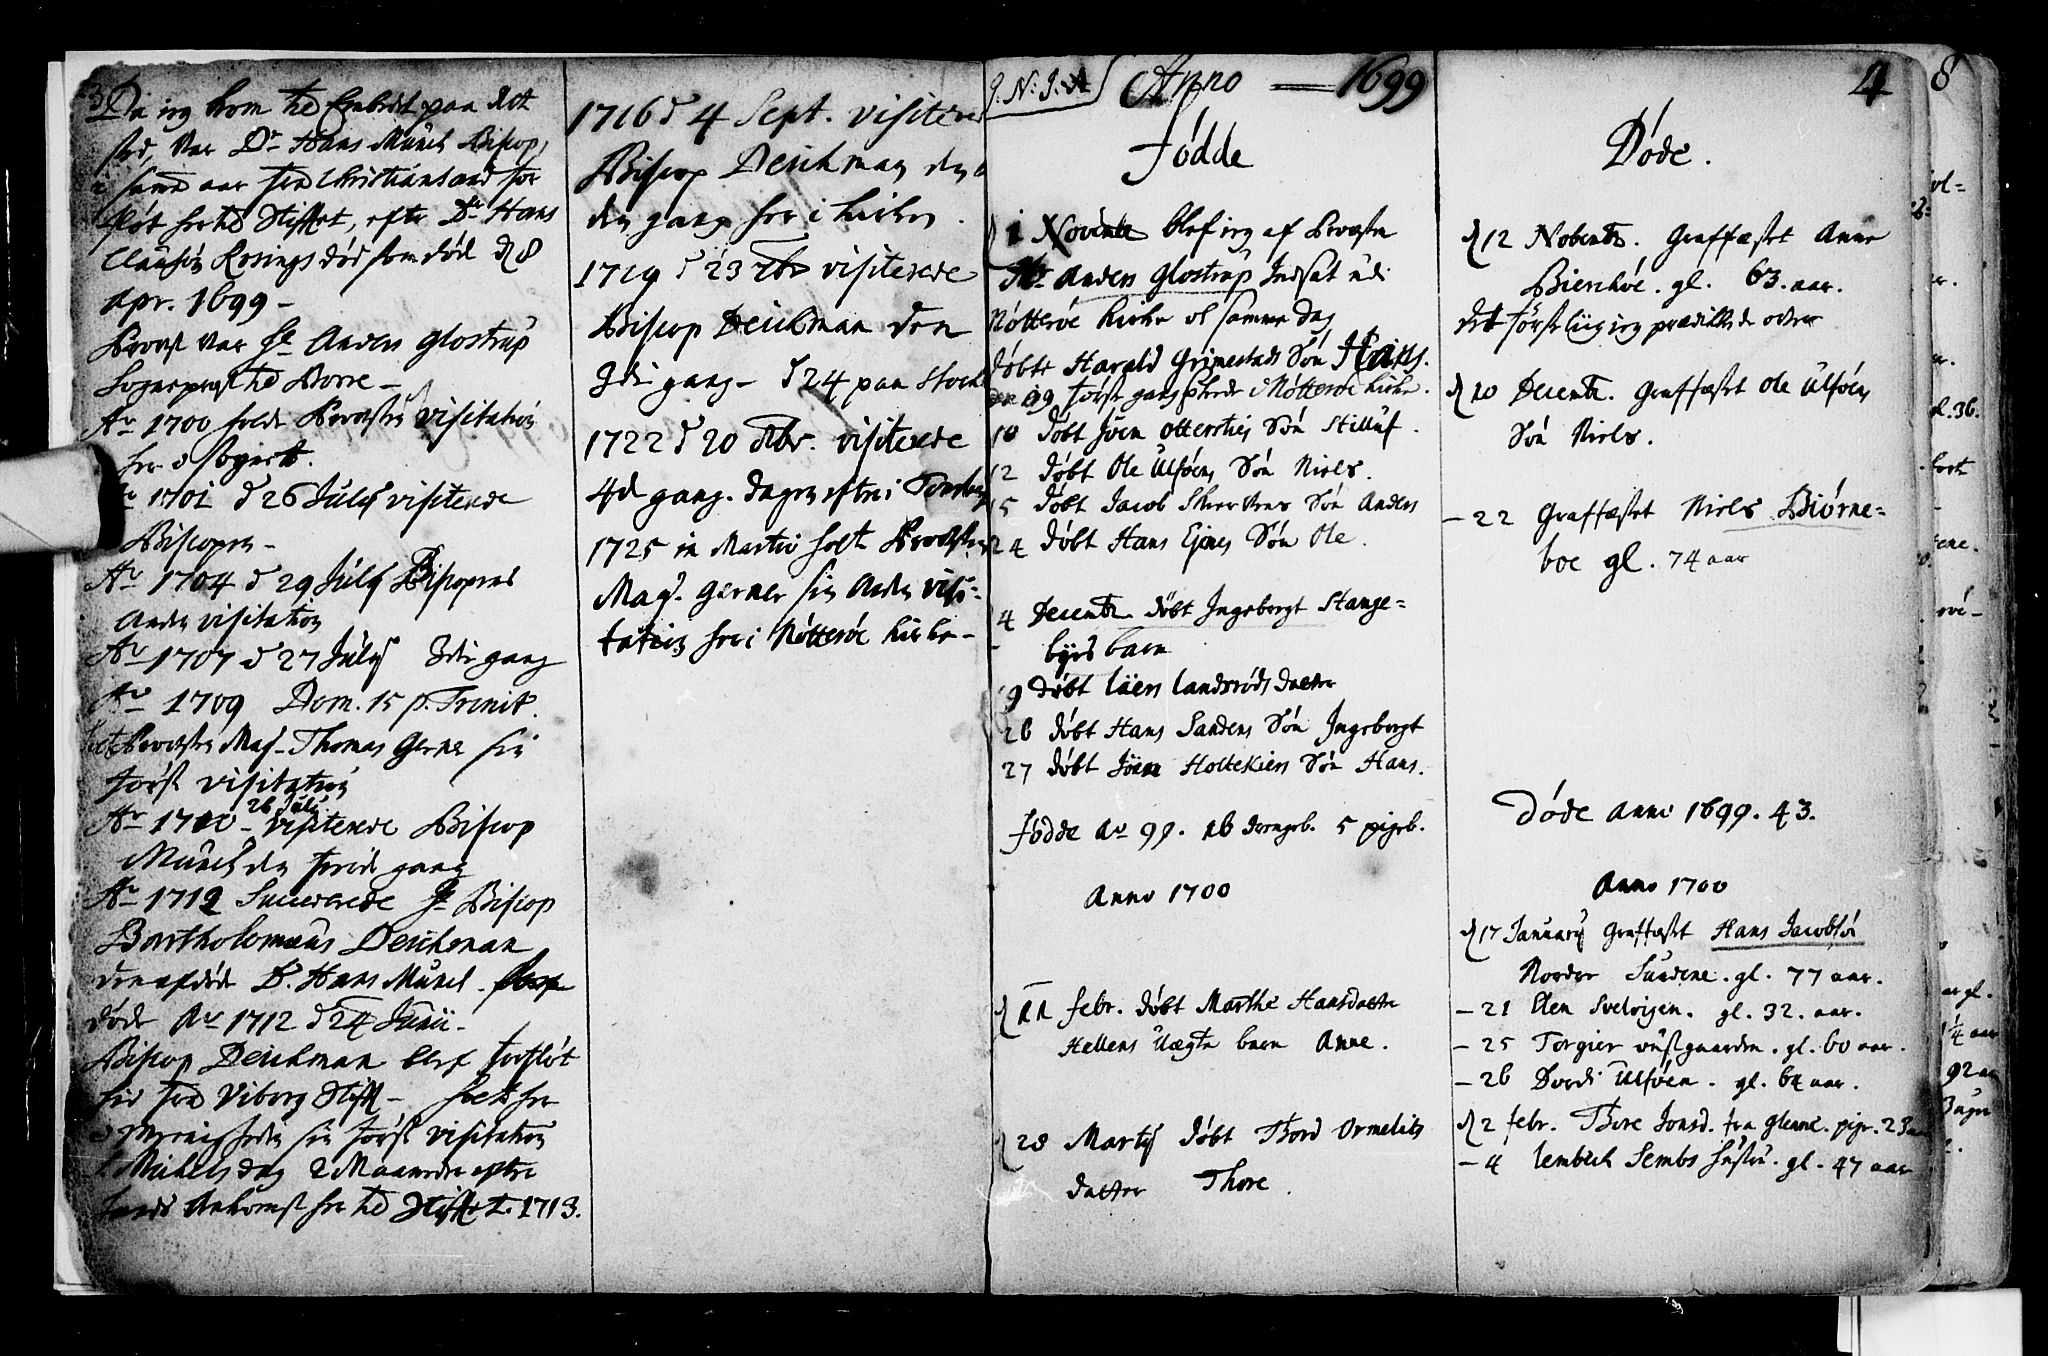 3
Da jeg kom til Embedet paa dett
sted, var Dr Hans Munch Biscop,
i samme aar fra Christiansand for
fløt her til Stifftet, efter Dr Hans
Clausøn Rosings død som døde d 8
Apr. 1699 -
Provst var Hr Anders Glostrup
Sogneprest til Borre -
Ao 1700 holdt Provsten visitation
her
Ao 1701 d 26 Julij visiterede
Biscopen -
Ao 1704 d 29 Julij Biscopens
anden visitation
Ao 1707 d 27 Julij 3die gang
Ao 1709 Dom. 15 p. Trinit.
Provsten Mag. Thomas Gerner sin
først visitation
26 Julij
Ao 1710 - visiterede Biscop
Munch den fierde gang
Ao 1712 Succederede Hr Biscop
Bartholomæus Deichman
den afdøde D. Hans Munch -
døde Ao 1712 d 24 Junii -
Biscop Deichman blef forfløt
hid fra Viborg Stifft - holt her
sin først visitation
Michelsdag 2 Maaneder efter
hands Ankomst her til Stifftet 1713.
1716 d 4 Sept. visitered
Biscop Deichman den
den gang her i kirken.
1719 d 23 7br visiterede
Biscop Deichman den
3die gang - d 24 paa Stock
1722 d 20 visiterede
4de gang. dagen efter i Tønsberg
1725 in Martio holt Provsten
Mag. Gerner sin Anden visi-
tation her i Nøtterøe kirke -
J. N. J. A Anno - 1699
Fødde
d 1 Novemb blef jeg af Provsten
Hr Anders Glostrup Indsat udi
Nøtterøe kirke og samme dag
døbte Harald Grimestads Søn Hans.
19 først gang i Nøtterøe kirke.
10 døbt Joen Ottersties Søn Stilluf.
12 døbt Ole Ulføens Søn Niels.
15 døbt Jacob Søn Anders
24 døbt Hans Ejnes Søn Ole.
4 Decemb døbt Ingeborgt Stange=
byes barn
19 døbt Lars Landsrøds datter
26 døbt Hans Sandens Søn Ingeborgt
27 døbt Jøren Holtekiers Søn Hans.
Fødde Ao 99. 16 drengeb. 5 pigeb.
Anno 1700
d 11 febr. døbt Marthe Hansdatter
Hellens Uægte barn Anne.
d 28 Martij døbt Thord Ormelits
datter Thore.
4
Døde.
d 12 Novemb. Graffæstet Anne
Bierchøe. gl. 63. aar.
det første liig jeg prædikede over
d 10 Decemb. Graffæstet Ole Ulføens
Søn Niels.
- 22 Graffæstet Niels Biørne=
boe gl. 74 aar
Døde Anno 1699. 43.
Anno 1700
d 17 Januarij Graffæstet Hans Jacobsøn
Norder Sundene. gl. 77 aar.
- 21 Elen Svelvigen. gl. 32. aar.
- 25 Torgier ødstgaarden. gl. 60 aar.
- 26 Sordi Ulføen. gl. 64 aar.
d 2 febr. Thore Jonsd. fra Glenne. pige. 23 aar
- 4 Lembich Sembs hustru. gl. 47 aar
8